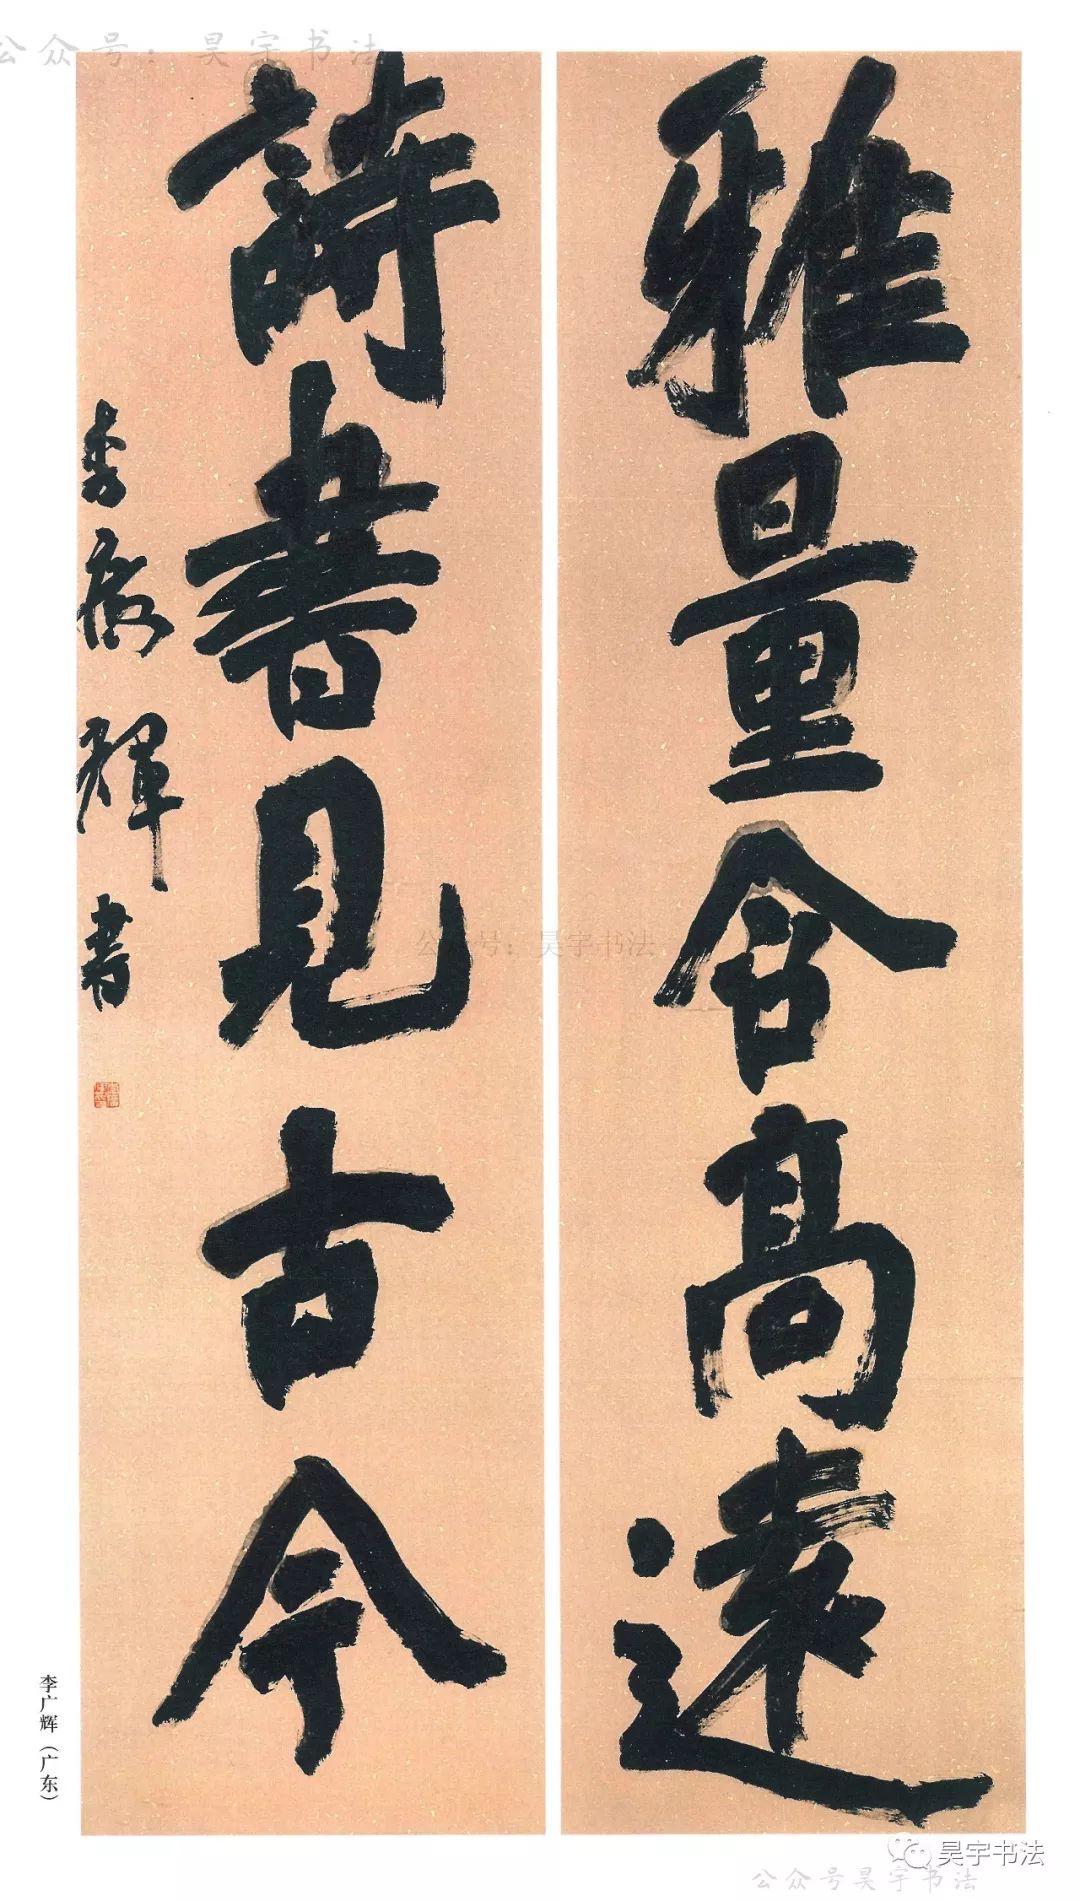 公众号：昊宇书法
雅量含高远
詩書見古今
李廣輝書
公众号：昊宇书法
李广辉（广东）
昊宇书法
公众号昊宇书法